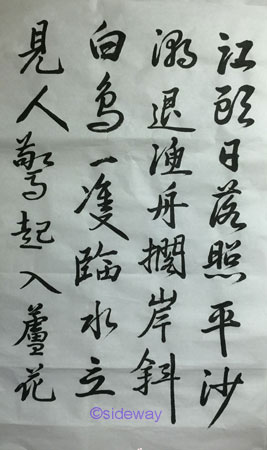 江頭日落照平沙
潮退漁舟擱岸斜
白鳥一雙臨水立
見人驚起入蘆花
©sideway